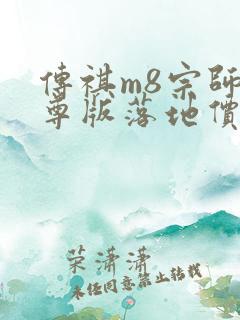 傳祺m8宗師
尊版落地價
荣潇潇
未经同意禁止转载